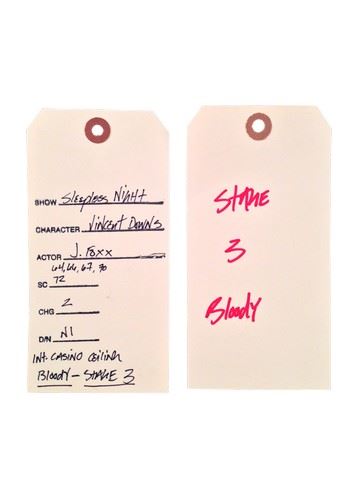 SHOW Sleepless Night
CHARACTER Vincent Downs
ACTOR J. Foxx
64, 66, 67, 70
SC 72
CHG 2
D/N N1
INT. CASINO CEILING
BLOODY - STAGE 3
STAGE
3
Bloody